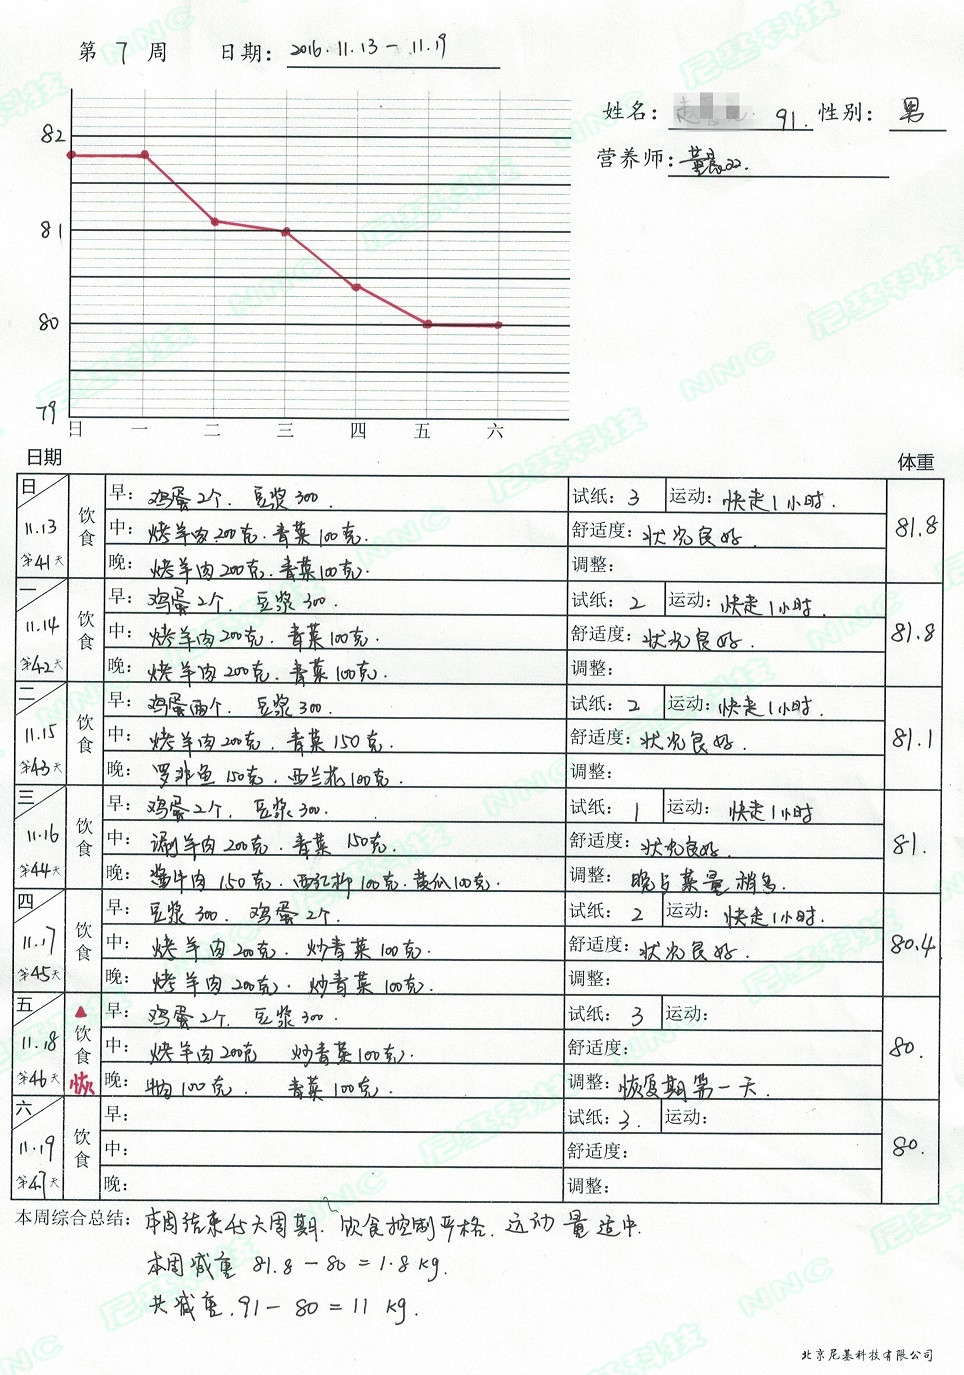 第 7 周 日期: 2016.11.13 — 11.19
姓名: 91. 性别: 男
营养师:
82
81
80
79
日 一 二 三 四 五 六
日期 体重
日 11.13 第41天 饮食
早: 鸡蛋2个. 豆浆300. 试纸: 3 运动: 快走1小时.
中: 烤羊肉200克. 青菜100克. 舒适度: 状况良好. 81.8
晚: 烤羊肉200克. 青菜100克. 调整:
一 11.14 第42天 饮食
早: 鸡蛋2个. 豆浆300. 试纸: 2 运动: 快走1小时.
中: 烤羊肉200克. 青菜100克. 舒适度: 状况良好. 81.8
晚: 烤羊肉200克. 青菜100克. 调整:
二 11.15 第43天 饮食
早: 鸡蛋两个. 豆浆300. 试纸: 2 运动: 快走1小时.
中: 烤羊肉200克. 青菜150克. 舒适度: 状况良好. 81.1
晚: 罗非鱼150克. 西兰花100克. 调整:
三 11.16 第44天 饮食
早: 鸡蛋2个. 豆浆300. 试纸: 1 运动: 快走1小时
中: 涮羊肉200克. 青菜 150克. 舒适度: 状况良好. 81.
晚: 酱牛肉150克. 西红柿100克. 黄瓜100克. 调整: 晚上菜量稍多.
四 11.17 第45天 饮食
早: 豆浆300. 鸡蛋2个. 试纸: 2 运动: 快走1小时.
中: 烤羊肉200克. 炒青菜100克. 舒适度: 状况良好. 80.4
晚: 烤羊肉200克. 炒青菜100克. 调整:
五 11.18 第46天 饮食 恢
早: 鸡蛋2个. 豆浆300. 试纸: 3 运动:
中: 烤羊肉200克 炒青菜100克. 舒适度: 80.
晚: 100克. 青菜100克. 调整: 恢复期第一天.
六 11.19 第47天 饮食
早: 试纸: 3. 运动:
中: 舒适度: 80.
晚: 调整:
本周综合总结: 本周结束45天周期. 饮食控制严格. 运动量适中.
本周减重 81.8 — 80 = 1.8 kg.
共减重. 91 — 80 = 11 kg.
北京尼基科技有限公司
尼基科技 NNC